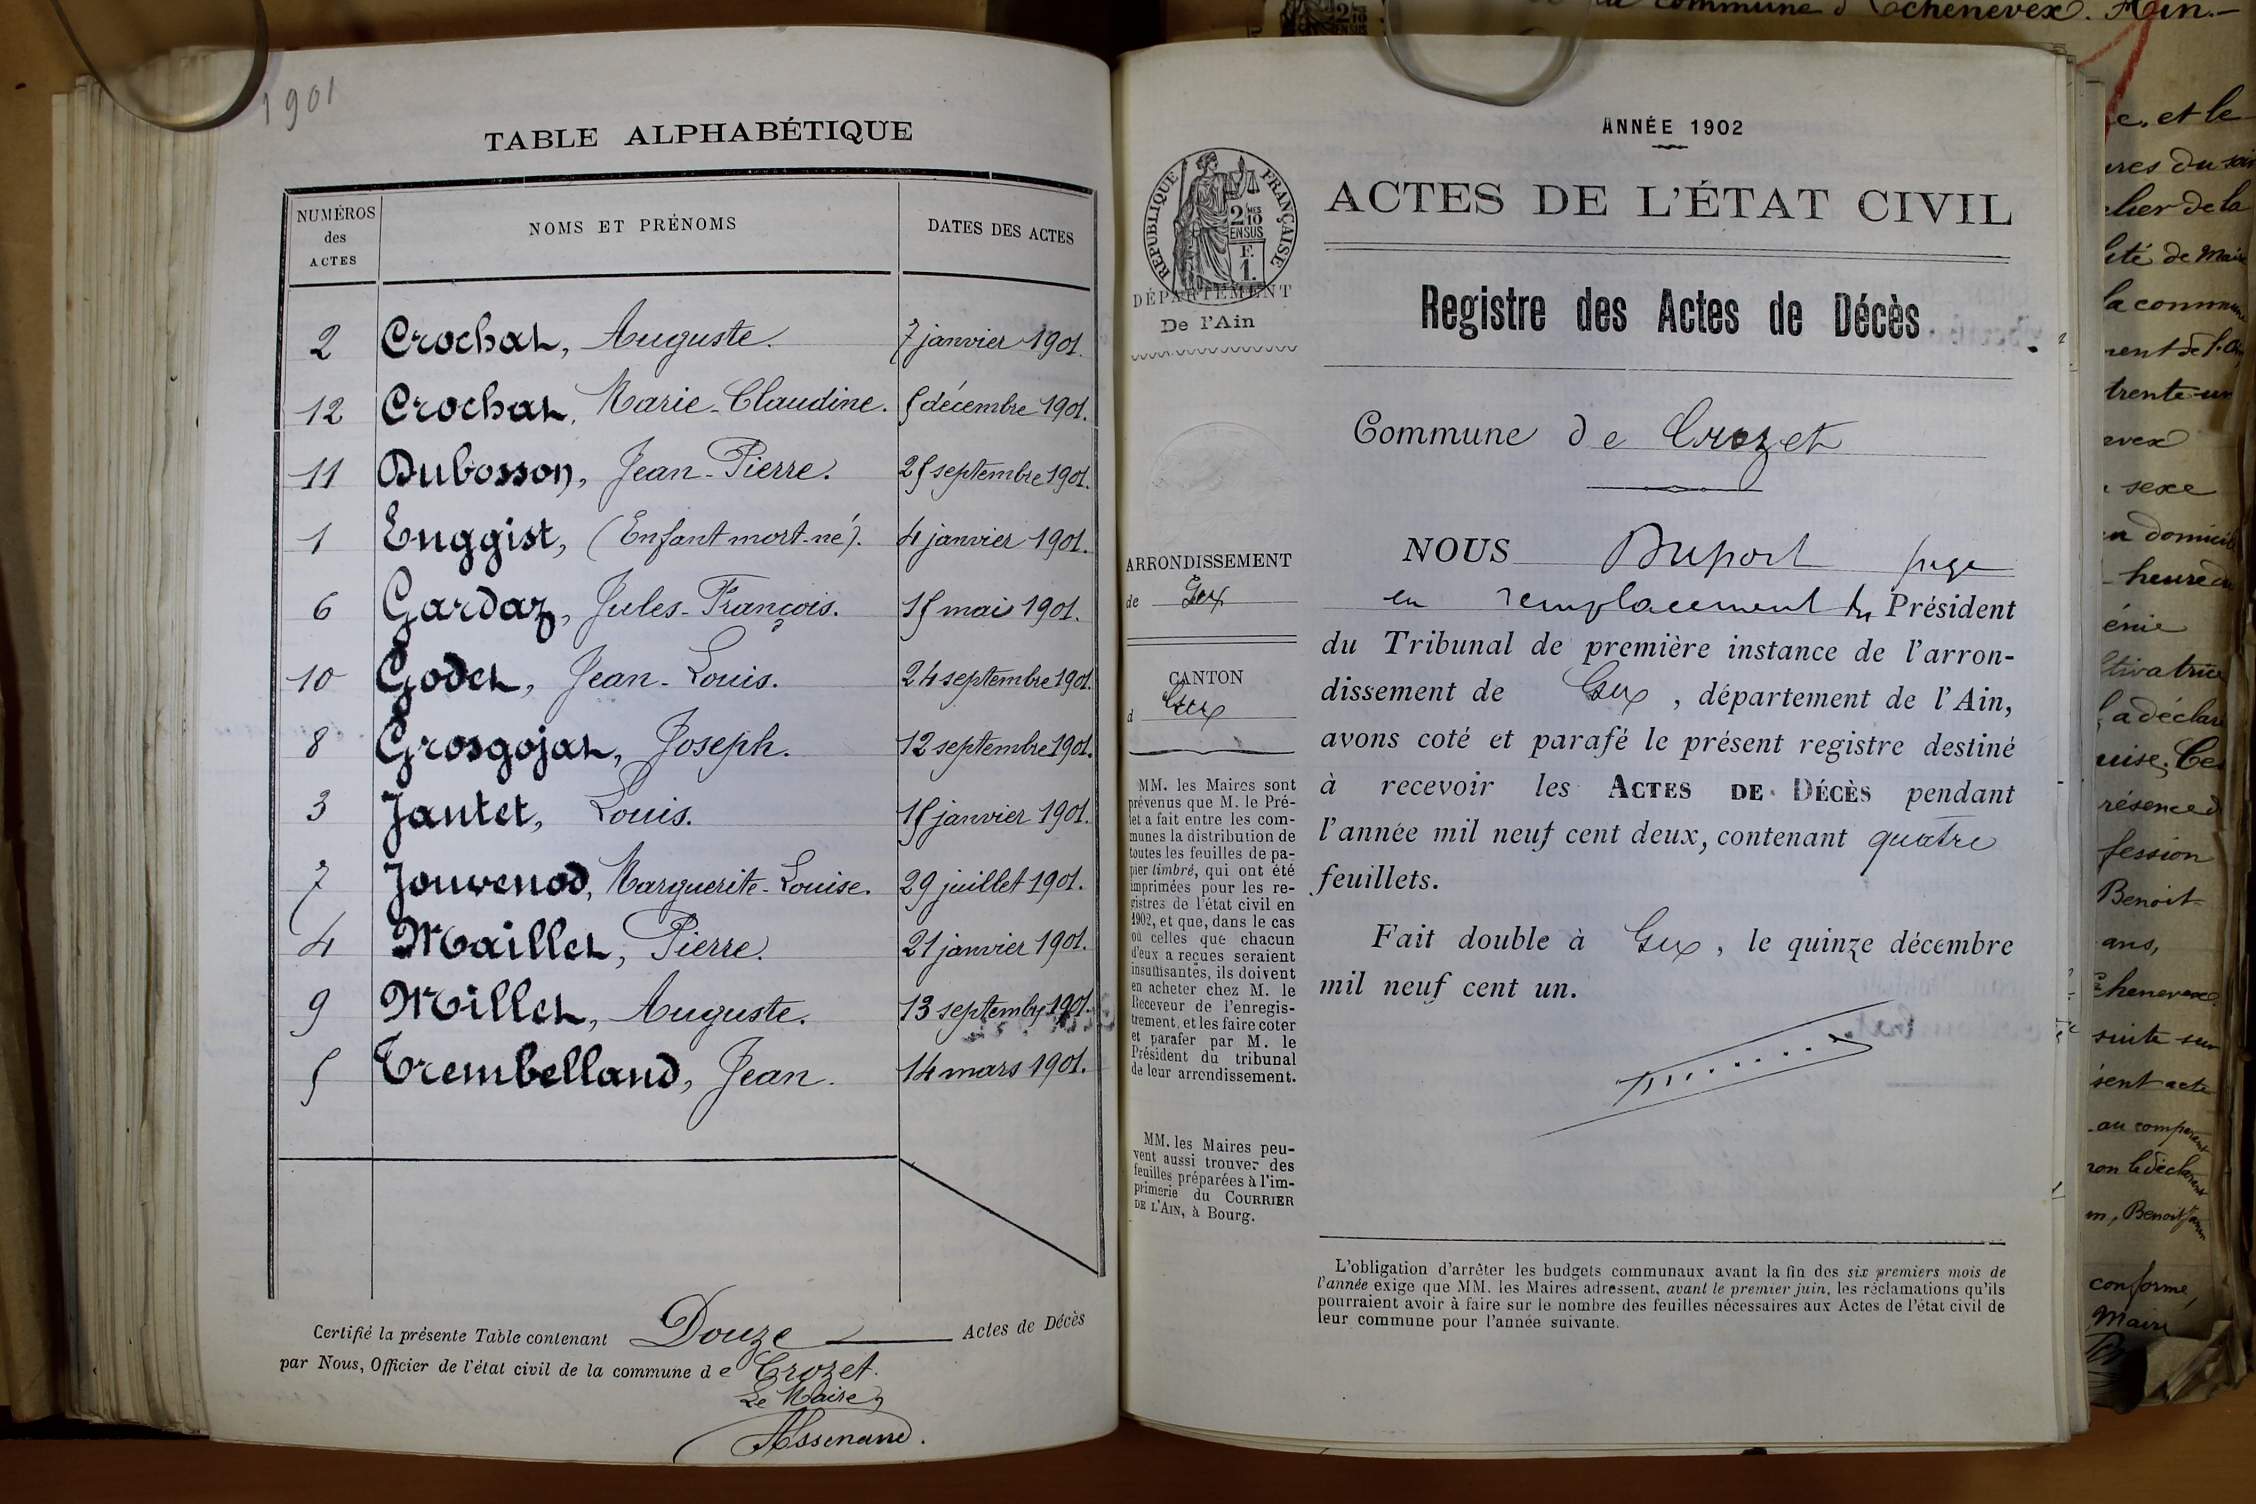 1901
TABLE ALPHABÉTIQUE
NUMÉROS des ACTES NOMS ET PRÉNOMS DATES DES ACTES
2 Crochat, Auguste. 7 janvier 1901.
12 Crochat, Marie-Claudine. 5 décembre 1901.
11 Dubosson, Jean-Pierre. 25 septembre 1901.
1 Euggist, (Enfant mort-né). 4 janvier 1901.
6 Gardaz, Jules-François. 15 mai 1901.
10 Godet, Jean-Louis. 24 septembre 1901.
8 Grosgojat, Joseph. 12 septembre 1901.
3 Jantet, Louis. 15 janvier 1901.
7 Jouvenod, Marguerite-Louise. 29 juillet 1901.
4 Maillet, Pierre. 21 janvier 1901.
9 Millet, Auguste. 13 septembre 1901.
5 Trembelland, Jean. 14 mars 1901.
Certifié la présente Table contenant Douze Actes de Décès
par Nous, Officier de l'état civil de la commune de Crozet.
Le Maire,
RÉPUBLIQUE FRANÇAISE
2 MES
10
EN SUS
F.
1.
DÉPARTEMENT
De l'Ain
ARRONDISSEMENT
de Gex
CANTON
d Gex
MM. les Maires sont
prévenus que M. le Pré-
fet a fait entre les com-
munes la distribution de
toutes les feuilles de pa-
pier timbré, qui ont été
imprimées pour les re-
gistres de l'état civil en
1902, et que, dans le cas
où celles que chacun
d'eux a reçues seraient
insuffisantes, ils doivent
en acheter chez M. le
Receveur de l'enregis-
trement, et les faire coter
et parafer par M. le
Président du tribunal
de leur arrondissement.
MM. les Maires peu-
vent aussi trouver des
feuilles préparées à l'im-
primerie du COURRIER
DE L'AIN, à Bourg.
ANNÉE 1902
ACTES DE L'ÉTAT CIVIL
Registre des Actes de Décès
Commune de Crozet
NOUS Duport juge
en remplacement du Président
du Tribunal de première instance de l'arron-
dissement de Gex, département de l'Ain,
avons coté et parafé le présent registre destiné
à recevoir les ACTES DE DÉCÈS pendant
l'année mil neuf cent deux, contenant quatre
feuillets.
Fait double à Gex, le quinze décembre
mil neuf cent un.
L'obligation d'arrêter les budgets communaux avant la fin des six premiers mois de
l'année exige que MM. les Maires adressent, avant le premier juin, les réclamations qu'ils
pourraient avoir à faire sur le nombre des feuilles nécessaires aux Actes de l'état civil de
leur commune pour l'année suivante.
la commune d'Echenevex. Ain.
et le
du soir
de la
de Maire
la commune
trente-un
sexe
domicile
heure du
a déclaré
Benoit
ans,
suite sur
acte
au comparant
Benoit
conforme,
Maire